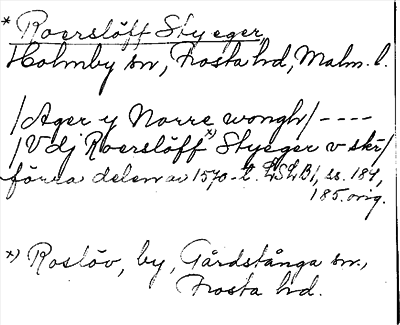 * Roerslöff Styeger
Holmby sn, Frosta hd, Malm. l.
/Ager y Norre wongh/ ----
/Vdj Roerslöff *) Styeger v skr/
förra delen av 1570-t. LSLB1, ss. 184,
185. orig.
*) Roslöv, by, Gårdstånga sn.,
Frosta hd.